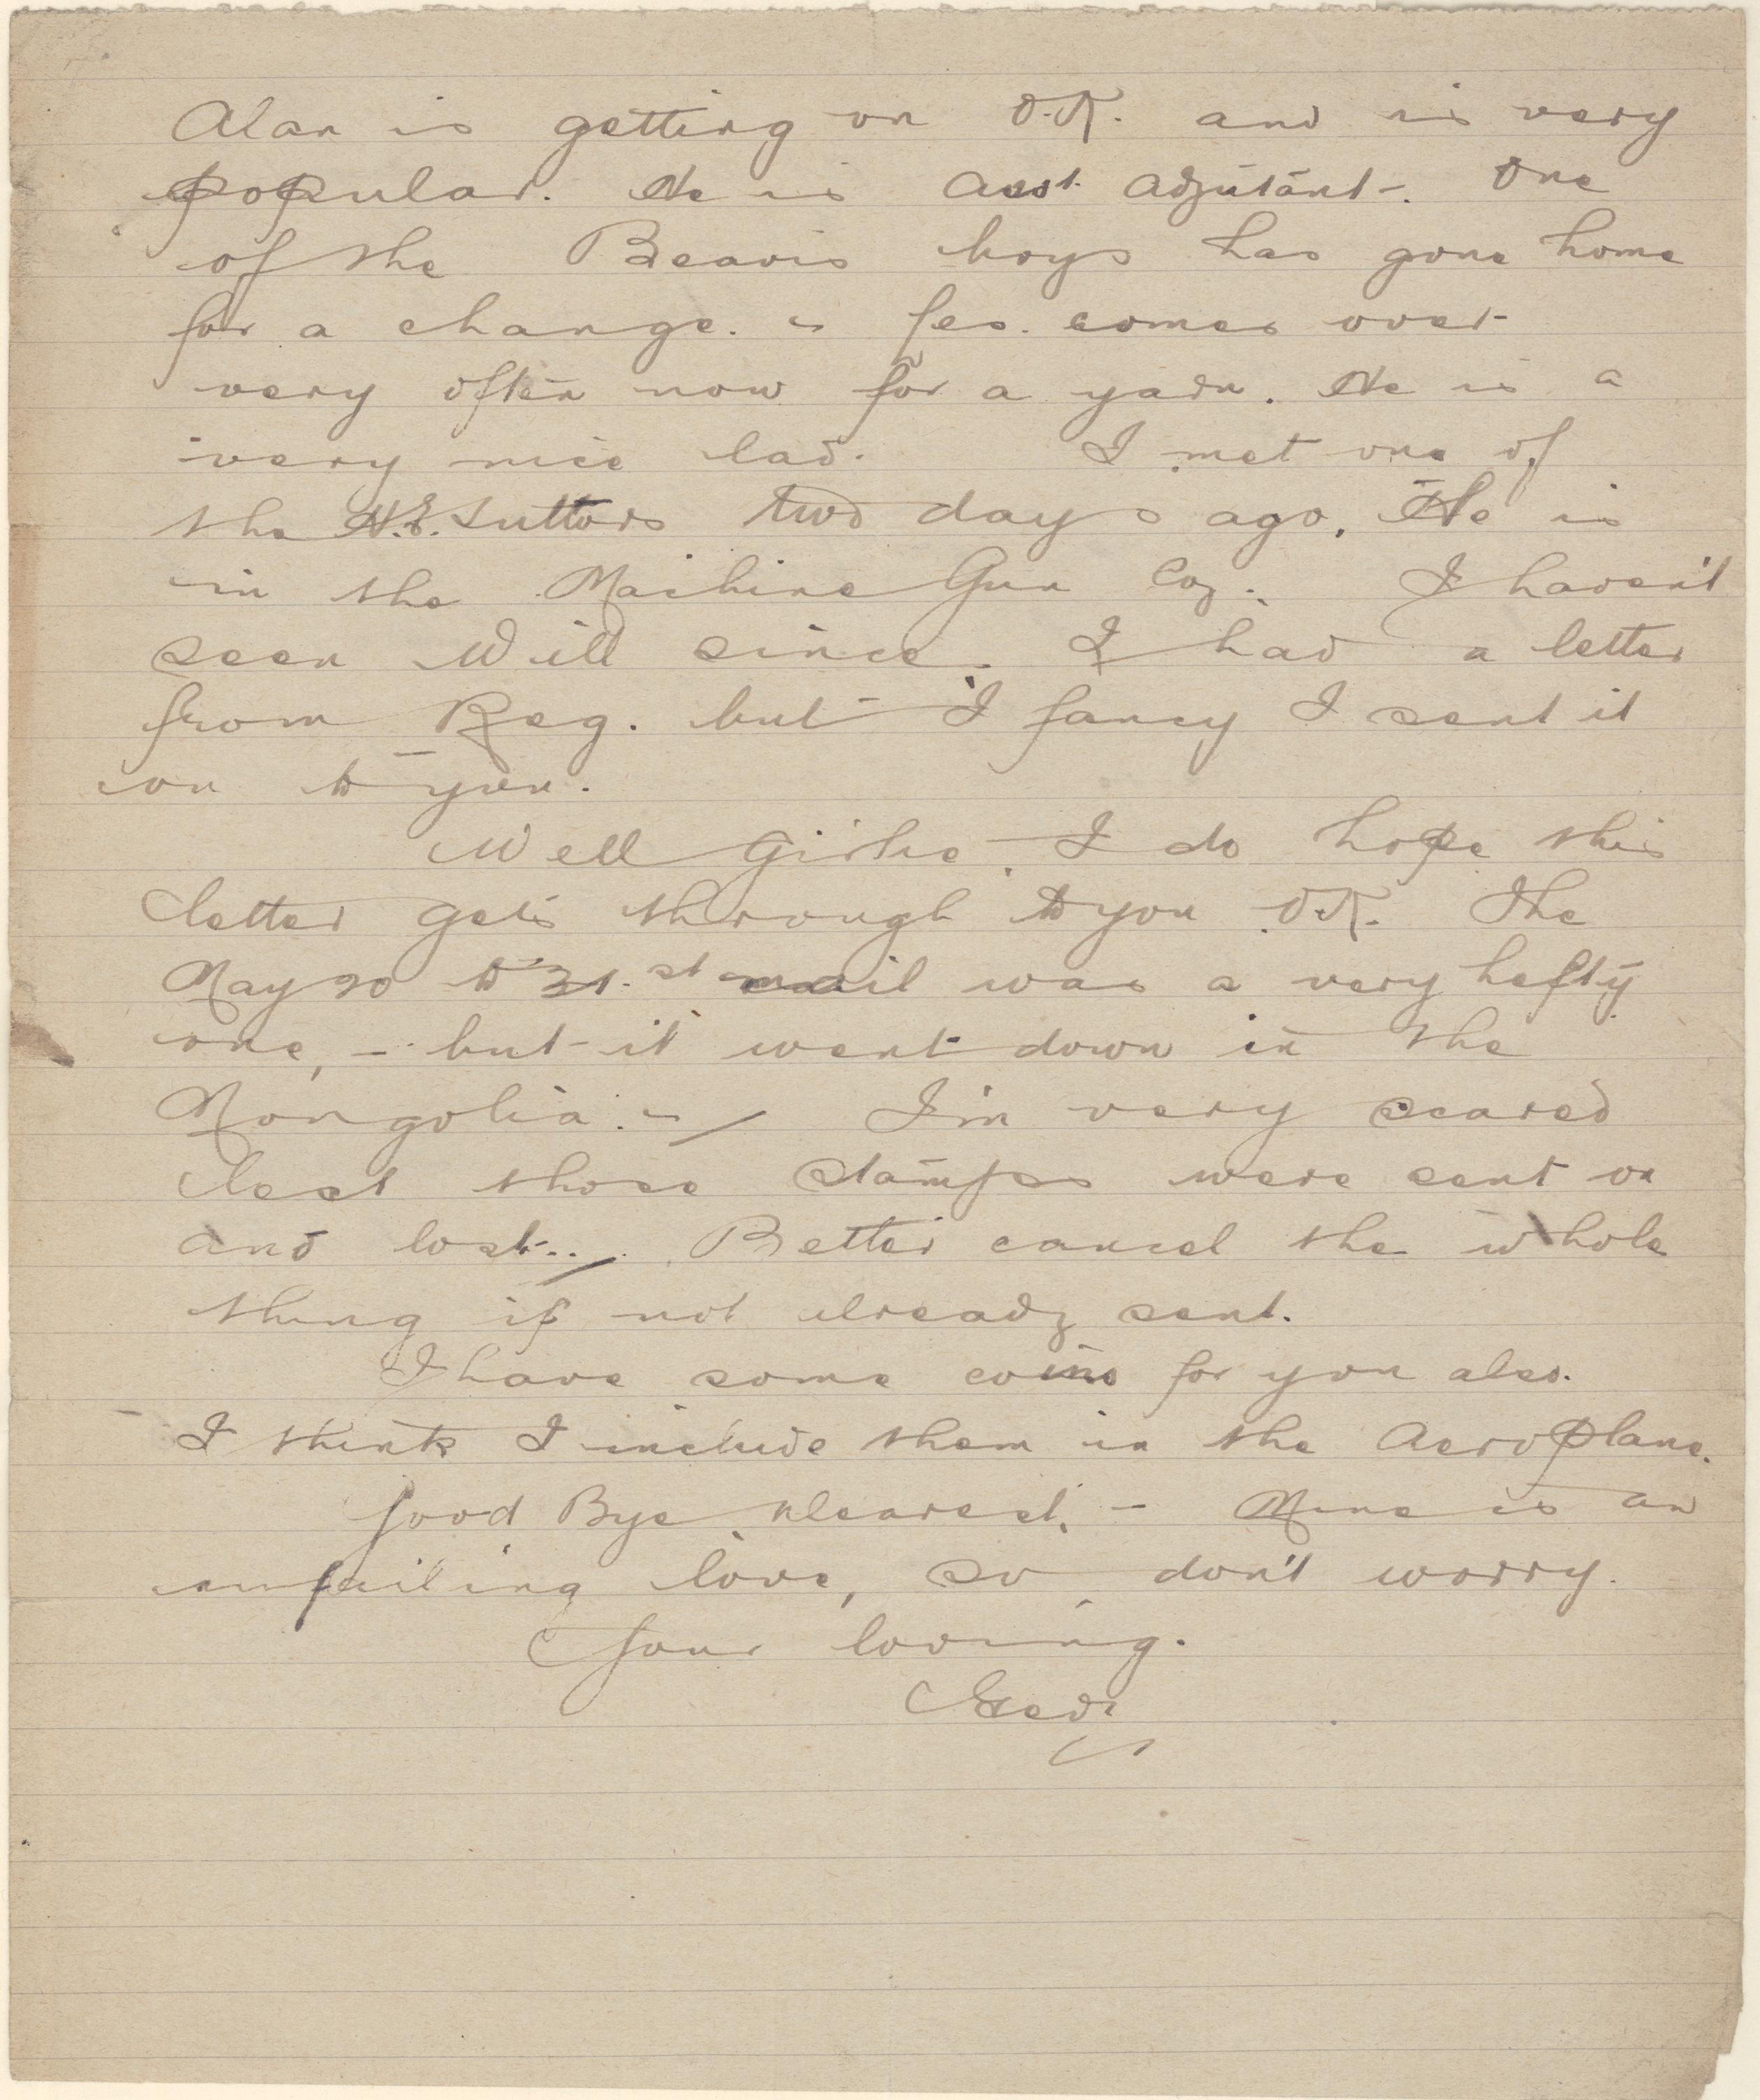 Alan is getting on O.K. and is very
popular. He is Asst. Adjutant. One
of the Beavis boys has gone home
for a change. - Les. comes over
very often now for a yarn. He is a
very nice lad. I met one of
the H.E. Suttors two days ago. He is
in the Machine Gun Coy. I haven't
seen Will since. I had a letter
from Reg. but I fancy I sent it
on to you.
Well Girlie I do hope this
letter gets through to you O.K. The
May 20 to 31.st mail was a very hefty
one, - but it went down in the
Mongolia. - I'm very scared
lest those stamps were sent on
and lost.. Better cancel the whole
thing if not already sent.
I have some coins for you also.
I think I include them in the Aeroplane.
Good Bye Dearest, - Mine is an
unfailing love, so don't worry.
Your loving.